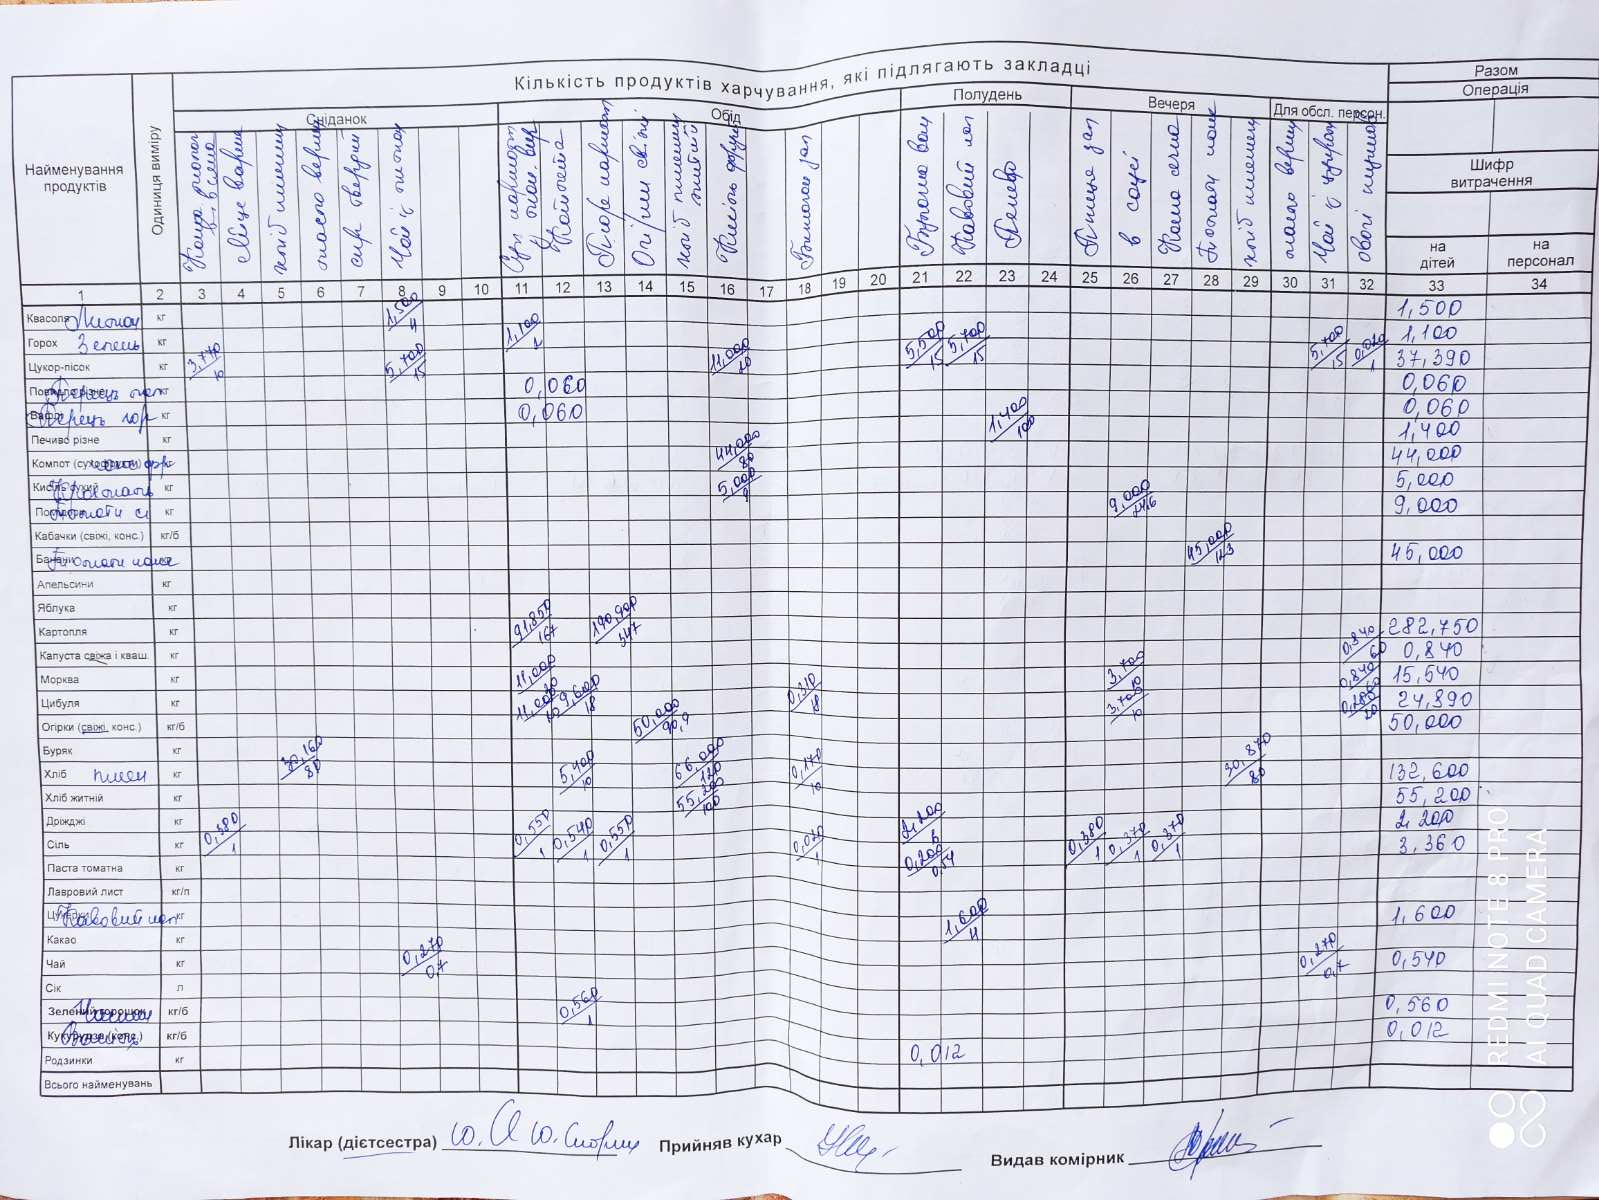 Кількість продуктів харчування, які підлягають закладці
Разом
Операція
Шифр витрачення
Найменування продуктів
Одиниця виміру
Сніданок
Обід
Полудень
Вечеря
Для обсл. персон.
на дітей
на персонал
Яйце варене
хліб пшеничн
масло вершк
сир твердий
Чай з лимоном
Огірки св.
Печиво
Птиця зап
в соусі
хліб пшенич
масло верш
Чай з цукром
1 2 3 4 5 6 7 8 9 10 11 12 13 14 15 16 17 18 19 20 21 22 23 24 25 26 27 28 29 30 31 32 33 34
Квасоля Лимон кг 1,500/4 1,500
Горох Зелень кг 1,100/2 1,100
Цукор-пісок кг 3,770/10 5,700/15 11,000/20 5,500/15 5,700/15 5,700/15 0,020/1 37,390
кг 0,060 0,060
Перець гор кг 0,060 0,060
Печиво різне кг 1,400/100 1,400
Компот (сухофрукти) кг 44,000/80 44,000
кг 5,000/9 5,000
кг 9,000/24,6 9,000
Кабачки (свіжі, конс.) кг/б
Банани 45,000/123 45,000
Апельсини кг
Яблука кг
Картопля кг 91,850/167 190,900/347 282,750
Капуста свіжа і кваш. кг 0,840/60 0,840
Морква кг 11,000/20 3,700/10 0,840 15,540
Цибуля кг 11,000/20 9,600/18 0,310/18 3,700/10 0,280/20 24,890
Огірки (свіжі, конс.) кг/б 50,000/90,9 50,000
Буряк кг
Хліб пшен кг 30,160/80 5,400/10 66,000/120 0,170/10 30,870/80 132,600
Хліб житній кг 55,200/100 55,200
Дріжджі кг 2,200/6 2,200
Сіль кг 0,380/1 0,550/1 0,540/1 0,550/1 0,020/1 0,200/0,54 0,380/1 0,370/1 0,370/1 3,360
Паста томатна кг
Лавровий лист кг/п
Цукерки Кавовий нап кг 1,600/4 1,600
Какао кг
Чай кг 0,270/0,7 0,270/0,7 0,540
Сік л
Зелений горошок кг/б 0,560/1 0,560
Кукурудза (конс.) кг/б 0,012
Родзинки кг 0,012
Всього найменувань
Лікар (дієтсестра)
Прийняв кухар
Видав комірник
REDMI NOTE 8 PRO
AI QUAD CAMERA